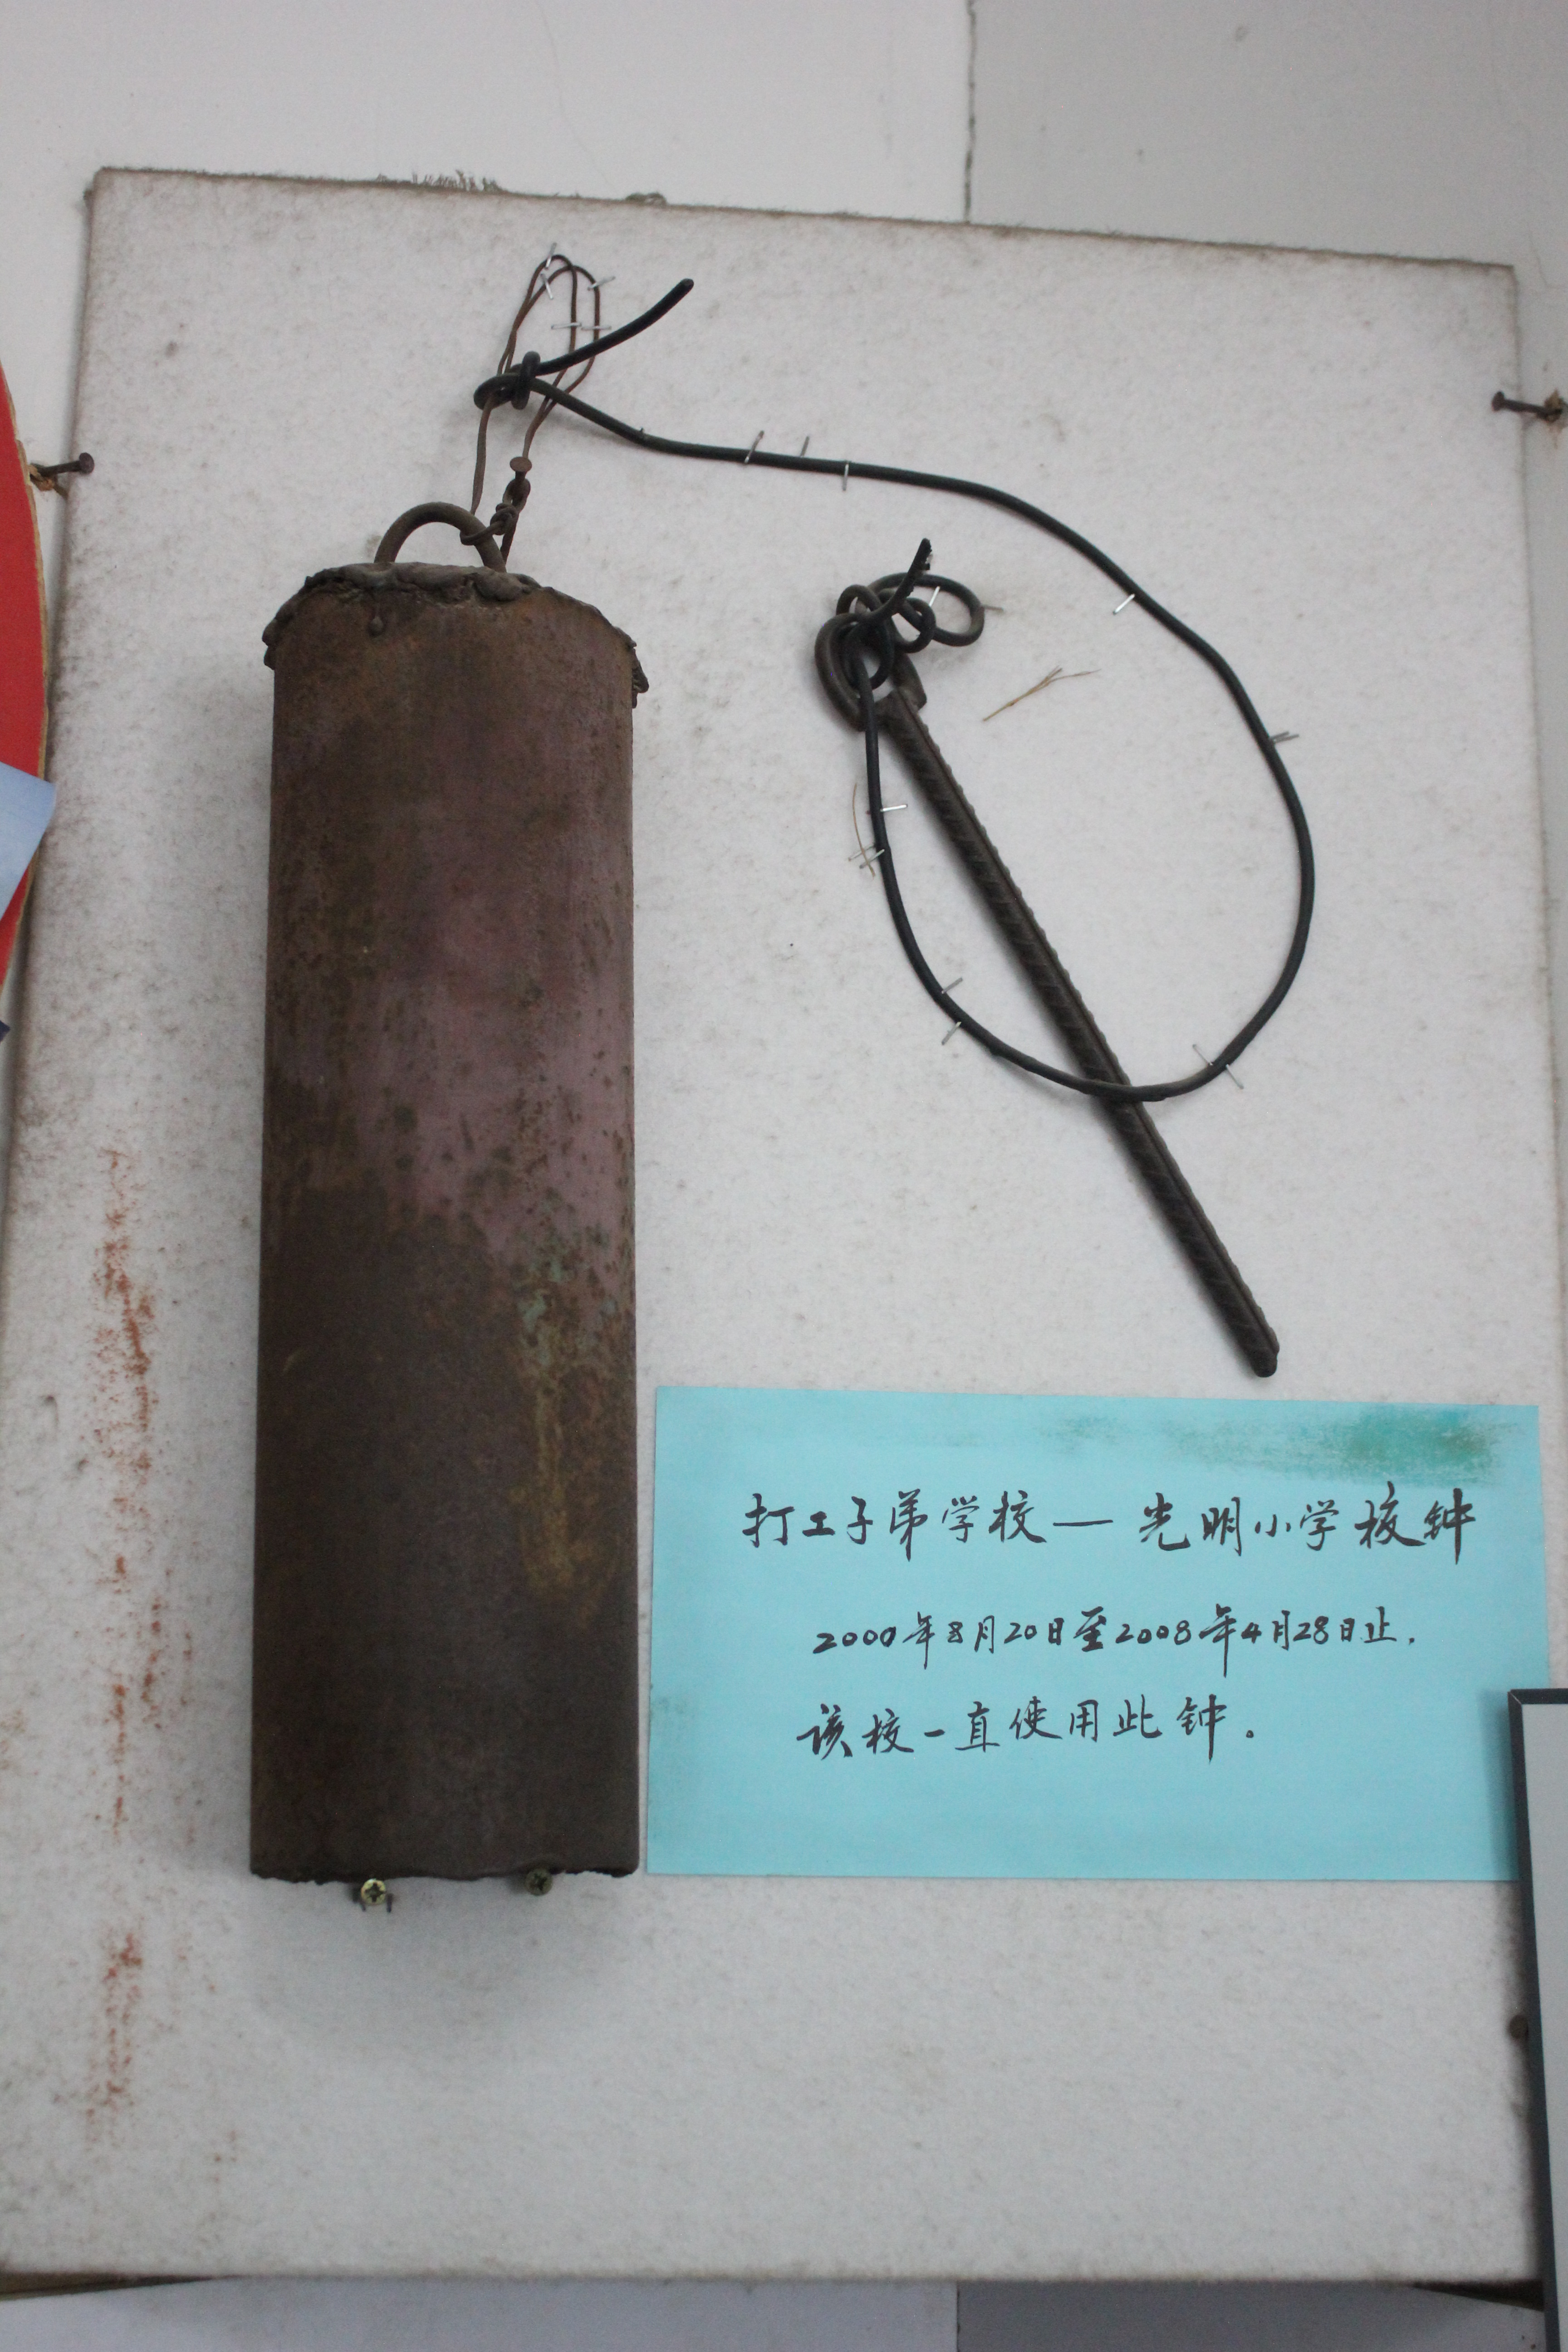 打工子弟学校—光明小学校钟
2000年8月20日至2008年4月28日止.
该校一直使用此钟.